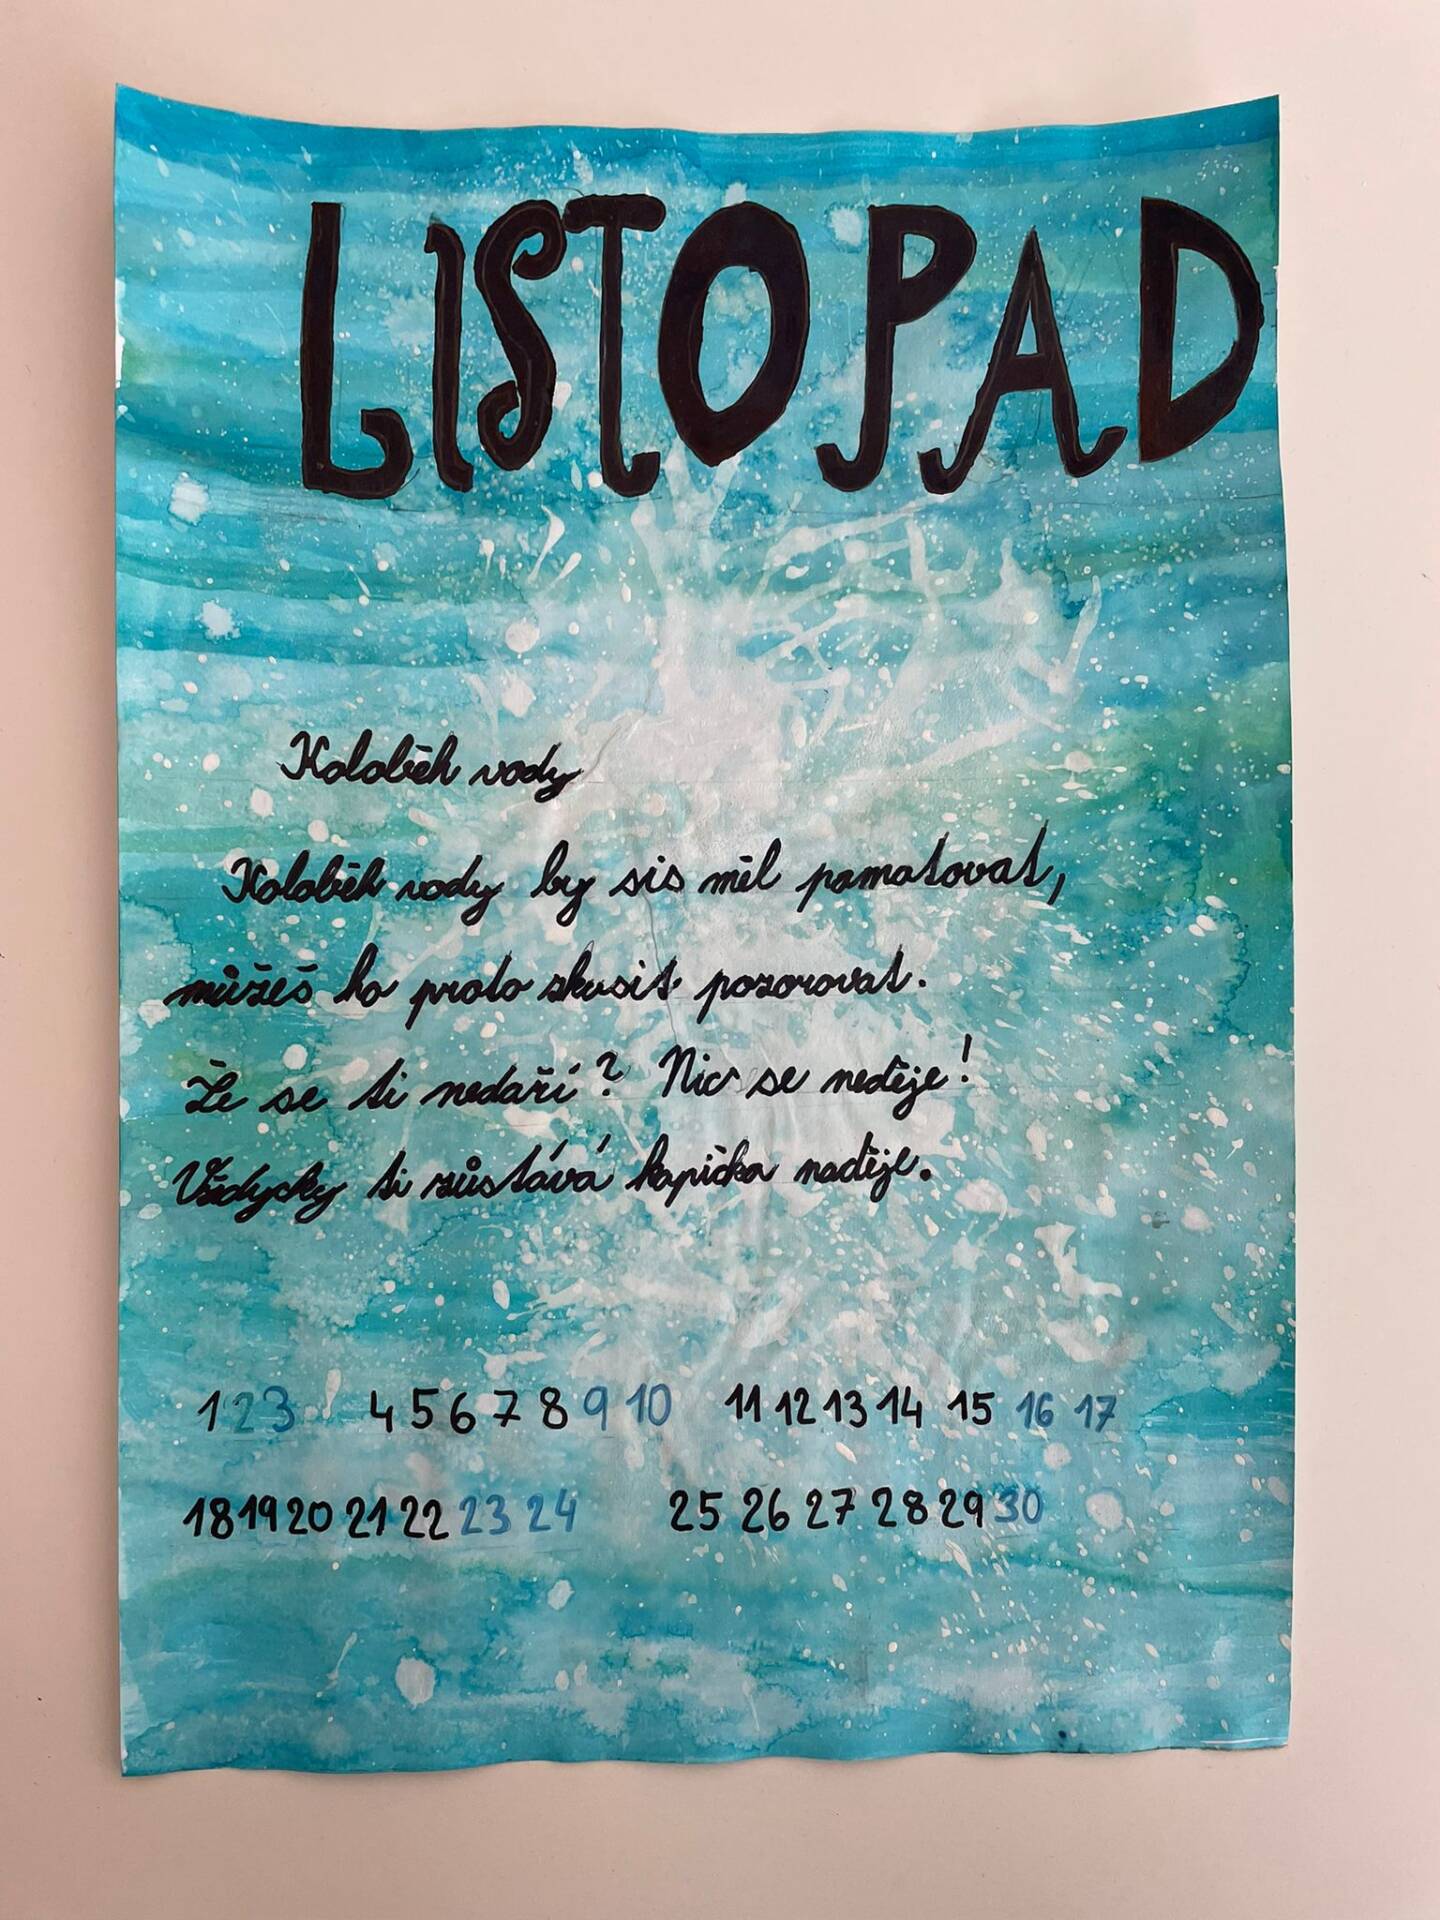 LISTOPAD
Koloběh vody
Koloběh vody by sis měl pamatovat,
můžeš ho proto zkusit pozorovat.
Že se ti nedaří? Nic se neděje!
Vždycky ti zůstává kapička naděje.
1 2 3 4 5 6 7 8 9 10 11 12 13 14 15 16 17
18 19 20 21 22 23 24 25 26 27 28 29 30